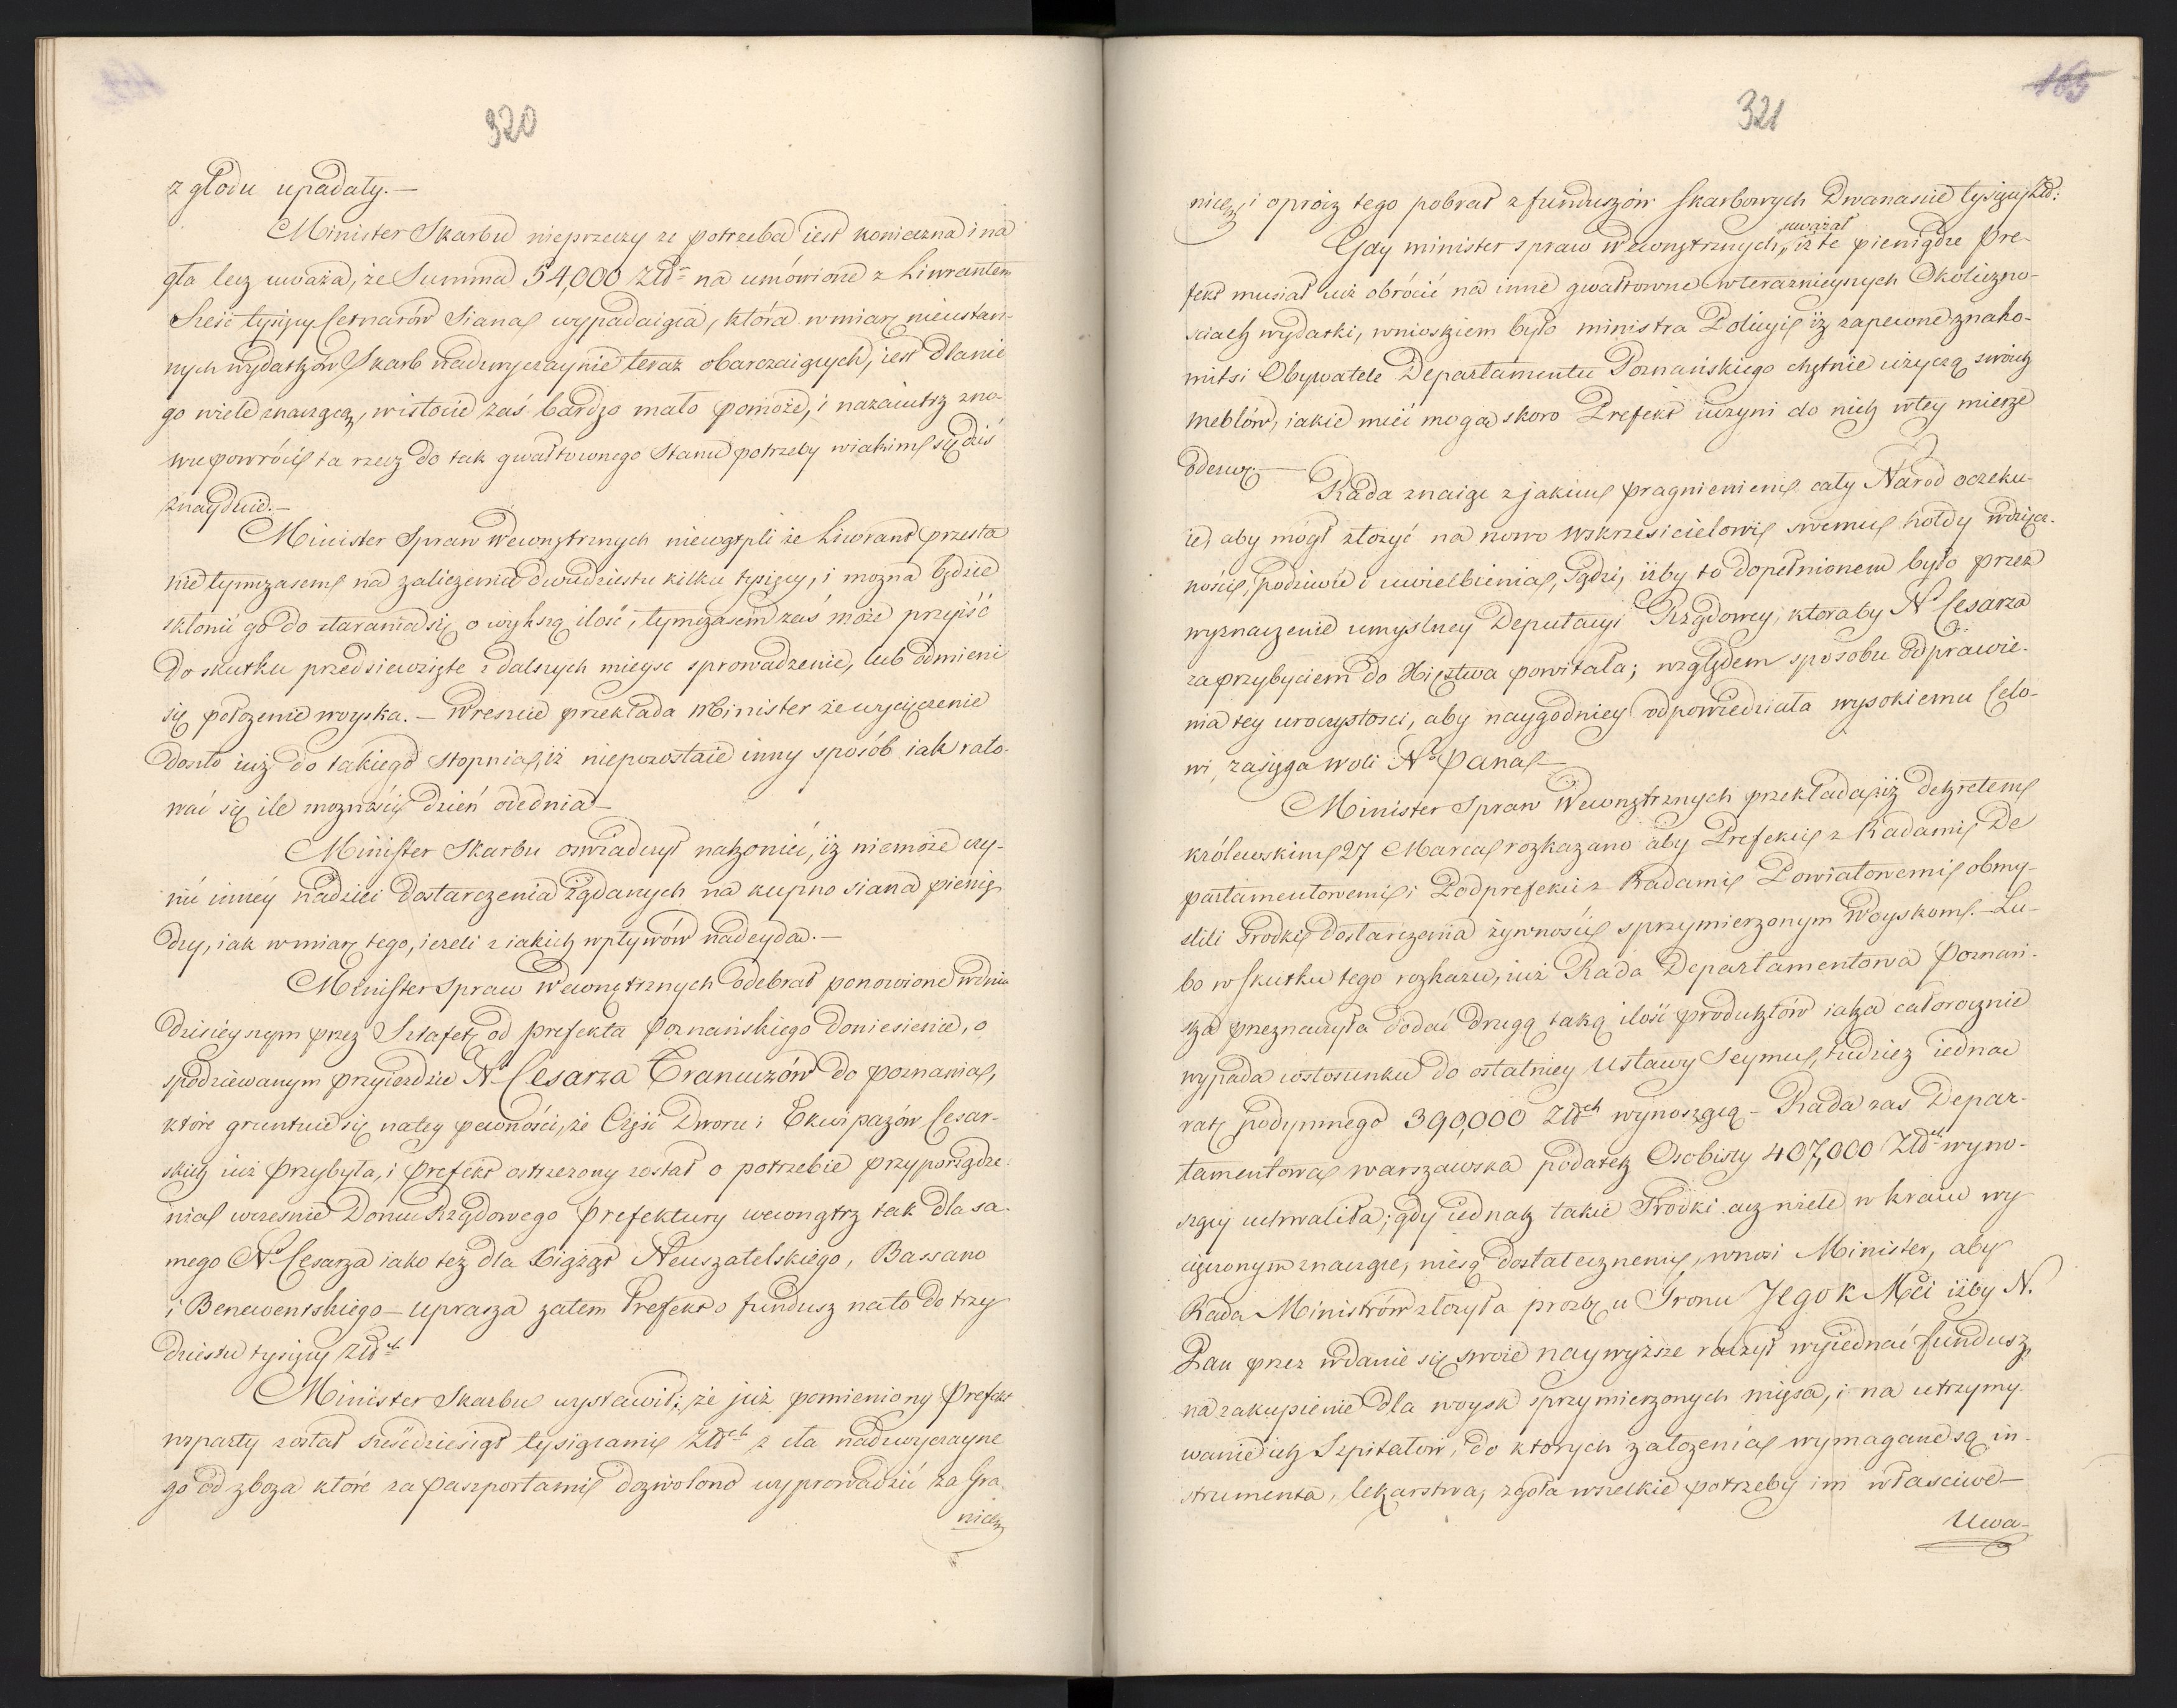 320
z głodu upadały.—
Minister Skarbu nieprzeczy ze potrzeba iest konieczna i na
gła lecz uważa, że Summa 54,000 Złd na umówione z Liwrantem
Sześć tysięcy Cetnarów Siana wypadaiąca, która w miarę nieustan-
nych wydatków Skarb nadzwyczaynie teraz obarczaiących, iest dla nie
go wiele znaczącą, wistocie zaś bardzo mało pomoże, i nazaiutrz zno-
wu powróci ta rzecz do tak gwałtownego Stanu potrzeby w iakim się dziś
znayduie.—
Minister Spraw Wewnętrznych niewątpli że Liwrant przesta
nie tymczasem na zaliczenia dwudziestu kilku tysięcy, i mozna będzie
skłonić go do starania się o większą ilość, tymczasem zaś może przyiść
do skutku przedsiewzięte z dalszych mieysc sprowadzenie, lub odmieni
się położenie woyska.— Wreszcie przekłada Minister że wycięczenie
doszło iuż do takiego stopnia, iż niepozostaie inny sposób iak rato-
wać się ile możności dzień ode dnia—
Minister Skarbu oświadczył nakoniec, iż niemoże czy-
nić inney nadziei dostarczenia żądanych na kupno siana pienię
dzy, iak w miarę tego, ieżeli z iakich wpływów nadeyda.—
Minister Spraw Wewnętrznych odebrał ponowione w dniu
dzisieyszym przez Sztafetę od prefekta Poznańskiego doniesienie, o
spodziewanym przyieździe N° Cesarza Francuzów do Poznania,
które gruntuie się na tey pewności, że Część Dworu i Ekwipazów Cesar-
skich iuż przybyła, i Prefekt ostrzeżony został o potrzebie przyporządze-
nia wcześnie Domu Rządowego Prefektury wewnątrz tak dla sa-
mego N° Cesarza iako też dla Xiążąt Neuszatelskiego, Bassano
i Benewentskiego— uprasza zatem Prefekt o fundusz na to do trzy
dziestu tysięcy Złd ch
Minister Skarbu wystawił; że już pomieniony Prefekt
wsparty został sześćdziesiąt tysiącami Złd ch z cła nadzwyczayne
go od zboża które za paszportami dozwolono wyprowadzić za Gra
nicę
163
321
nicę, i oprócz tego pobrał z funduszów Skarbowych Dwanaście tysięcy Złd:
Gdy minister spraw Wewnętrznych uważał, iż te pieniądze Pre-
fekt musiał iuż obrócić na inne gwałtowne w teraznieyszych Okoliczno-
ściach wydatki, wnioskiem było ministra Policyi iż zapewne znako-
mitsi Obywatele Departamentu Poznańskiego chętnie użyczą swoich
meblów, iakie mieć mogą skoro Prefekt uczyni do nich w tey mierze
odezwę.—
Rada znaiąc z jakim pragnieniem cały Naród oczeku-
ie, aby mógł złożyć na nowo Wskrzesicielowi swemu hołdy wdzięcz-
ności, podziwu i uwielbienia, sądzi, iżby to dopełnionem było przez
wyznaczenie umyślney Deputacyi Rządowey, któraby N° Cesarza
za przybyciem do Xięstwa powitała; względem sposobu odprawie-
nia tey uroczystosci, aby naygodniey odpowiedziała wysokiemu Celo-
wi, zasięga woli N° Pana—
Minister Spraw Wewnętrznych przekłada, iż dekretem
królewskim 27 Marca rozkazano aby Prefekci z Radami De
partamentowemi i Podprefekci z Radami Powiatowemi obmy-
slili Srodki dostarczenia żywności sprzymierzonym Woyskom.— Lu-
bo w skutku tego rozkazu, iuż Rada Departamentowa Poznań-
ska przeznaczyła dodać drugą taką ilość produktów iaka całorocznie
wypada w stosunku do ostatniey Ustawy Seymu, tudzież iedna
ratę podymnego 390,000 Złd ch wynoszącą— Rada zas Depar-
tamentowa warszawska podatek Osobisty 407,000 Złd ch wyno-
szący uchwaliła; gdy iednak takie Srodki acz wiele w kraiu wy
cięczonym znaczące, niesą dostatecznemi, wnosi Minister, aby
Rada Ministrów złożyła prozbę u Tronu Jego K Mci iżby N.
Pan przez wdanie się swoie naywyższe raczył wyiednać fundusz,
na zakupienie dla woysk sprzymierzonych mięsa, i na utrzymy-
wanie ich Szpitalów, do których założenia wymagane są in-
strumenta, lekarstwa, zgoła wszelkie potrzeby im właściwe—
Uwa-